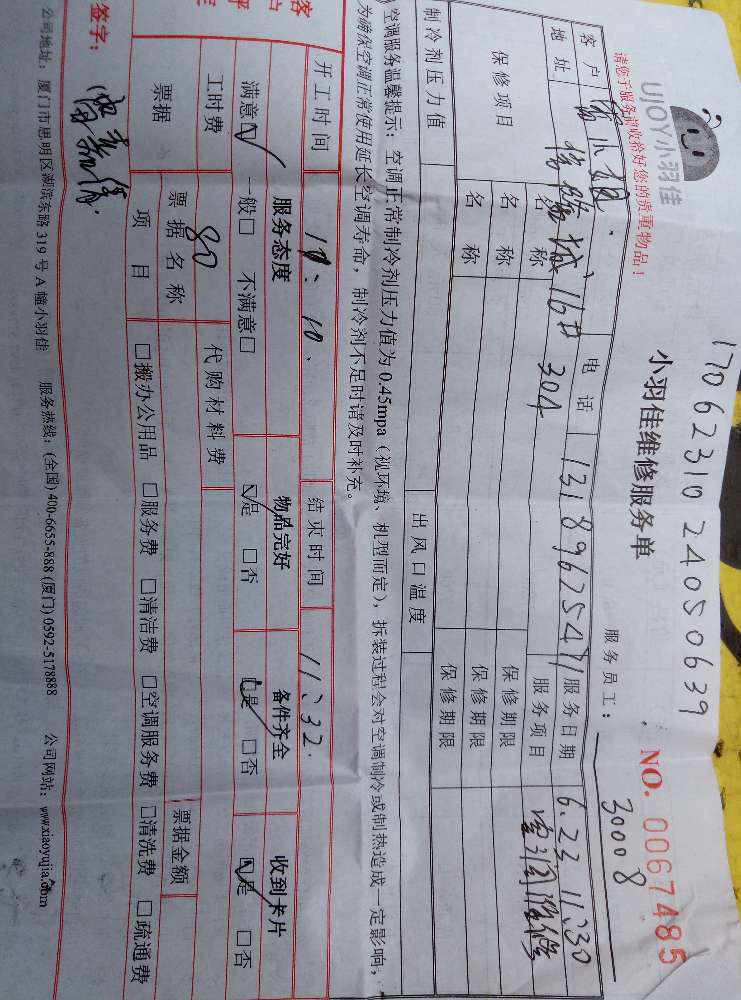 17062310240S0639
UJOY小羽佳
小羽佳维修服务单
NO. 0067485
请您于服务前收拾好您的贵重物品！
服务员工： 30008
客户 小姐 电话 13189625471 服务日期 6.23.11:30
地址 城16 304 服务项目
保修项目 名称 保修期限
名称 保修期限
名称 保修期限
制冷剂压力值 出风口温度
空调服务温馨提示：空调正常制冷剂压力值为0.45mpa（视环境、机型而定），拆装过程会对空调制冷或制热造成一定影响，
为确保空调正常使用延长空调寿命，制冷剂不足时请及时补充。
开工时间 10:10. 结束时间 11:32.
客户 服务态度 物品完好 备件齐全 收到卡片
满意☑ 一般□ 不满意□ ☑是 □否 ☑是 □否 ☑是 □否
工时费 80 代购材料费
票据 票据名称 票据金额
项目 □搬办公用品 □服务费 □清洁费 □空调服务费 □清洗费 □疏通费
签字：
公司地址：厦门市思明区湖滨东路319号A幢小羽佳 服务热线：(全国) 400-6655-888 (厦门) 0592-5178888 公司网站：www.xiaoyujia.com